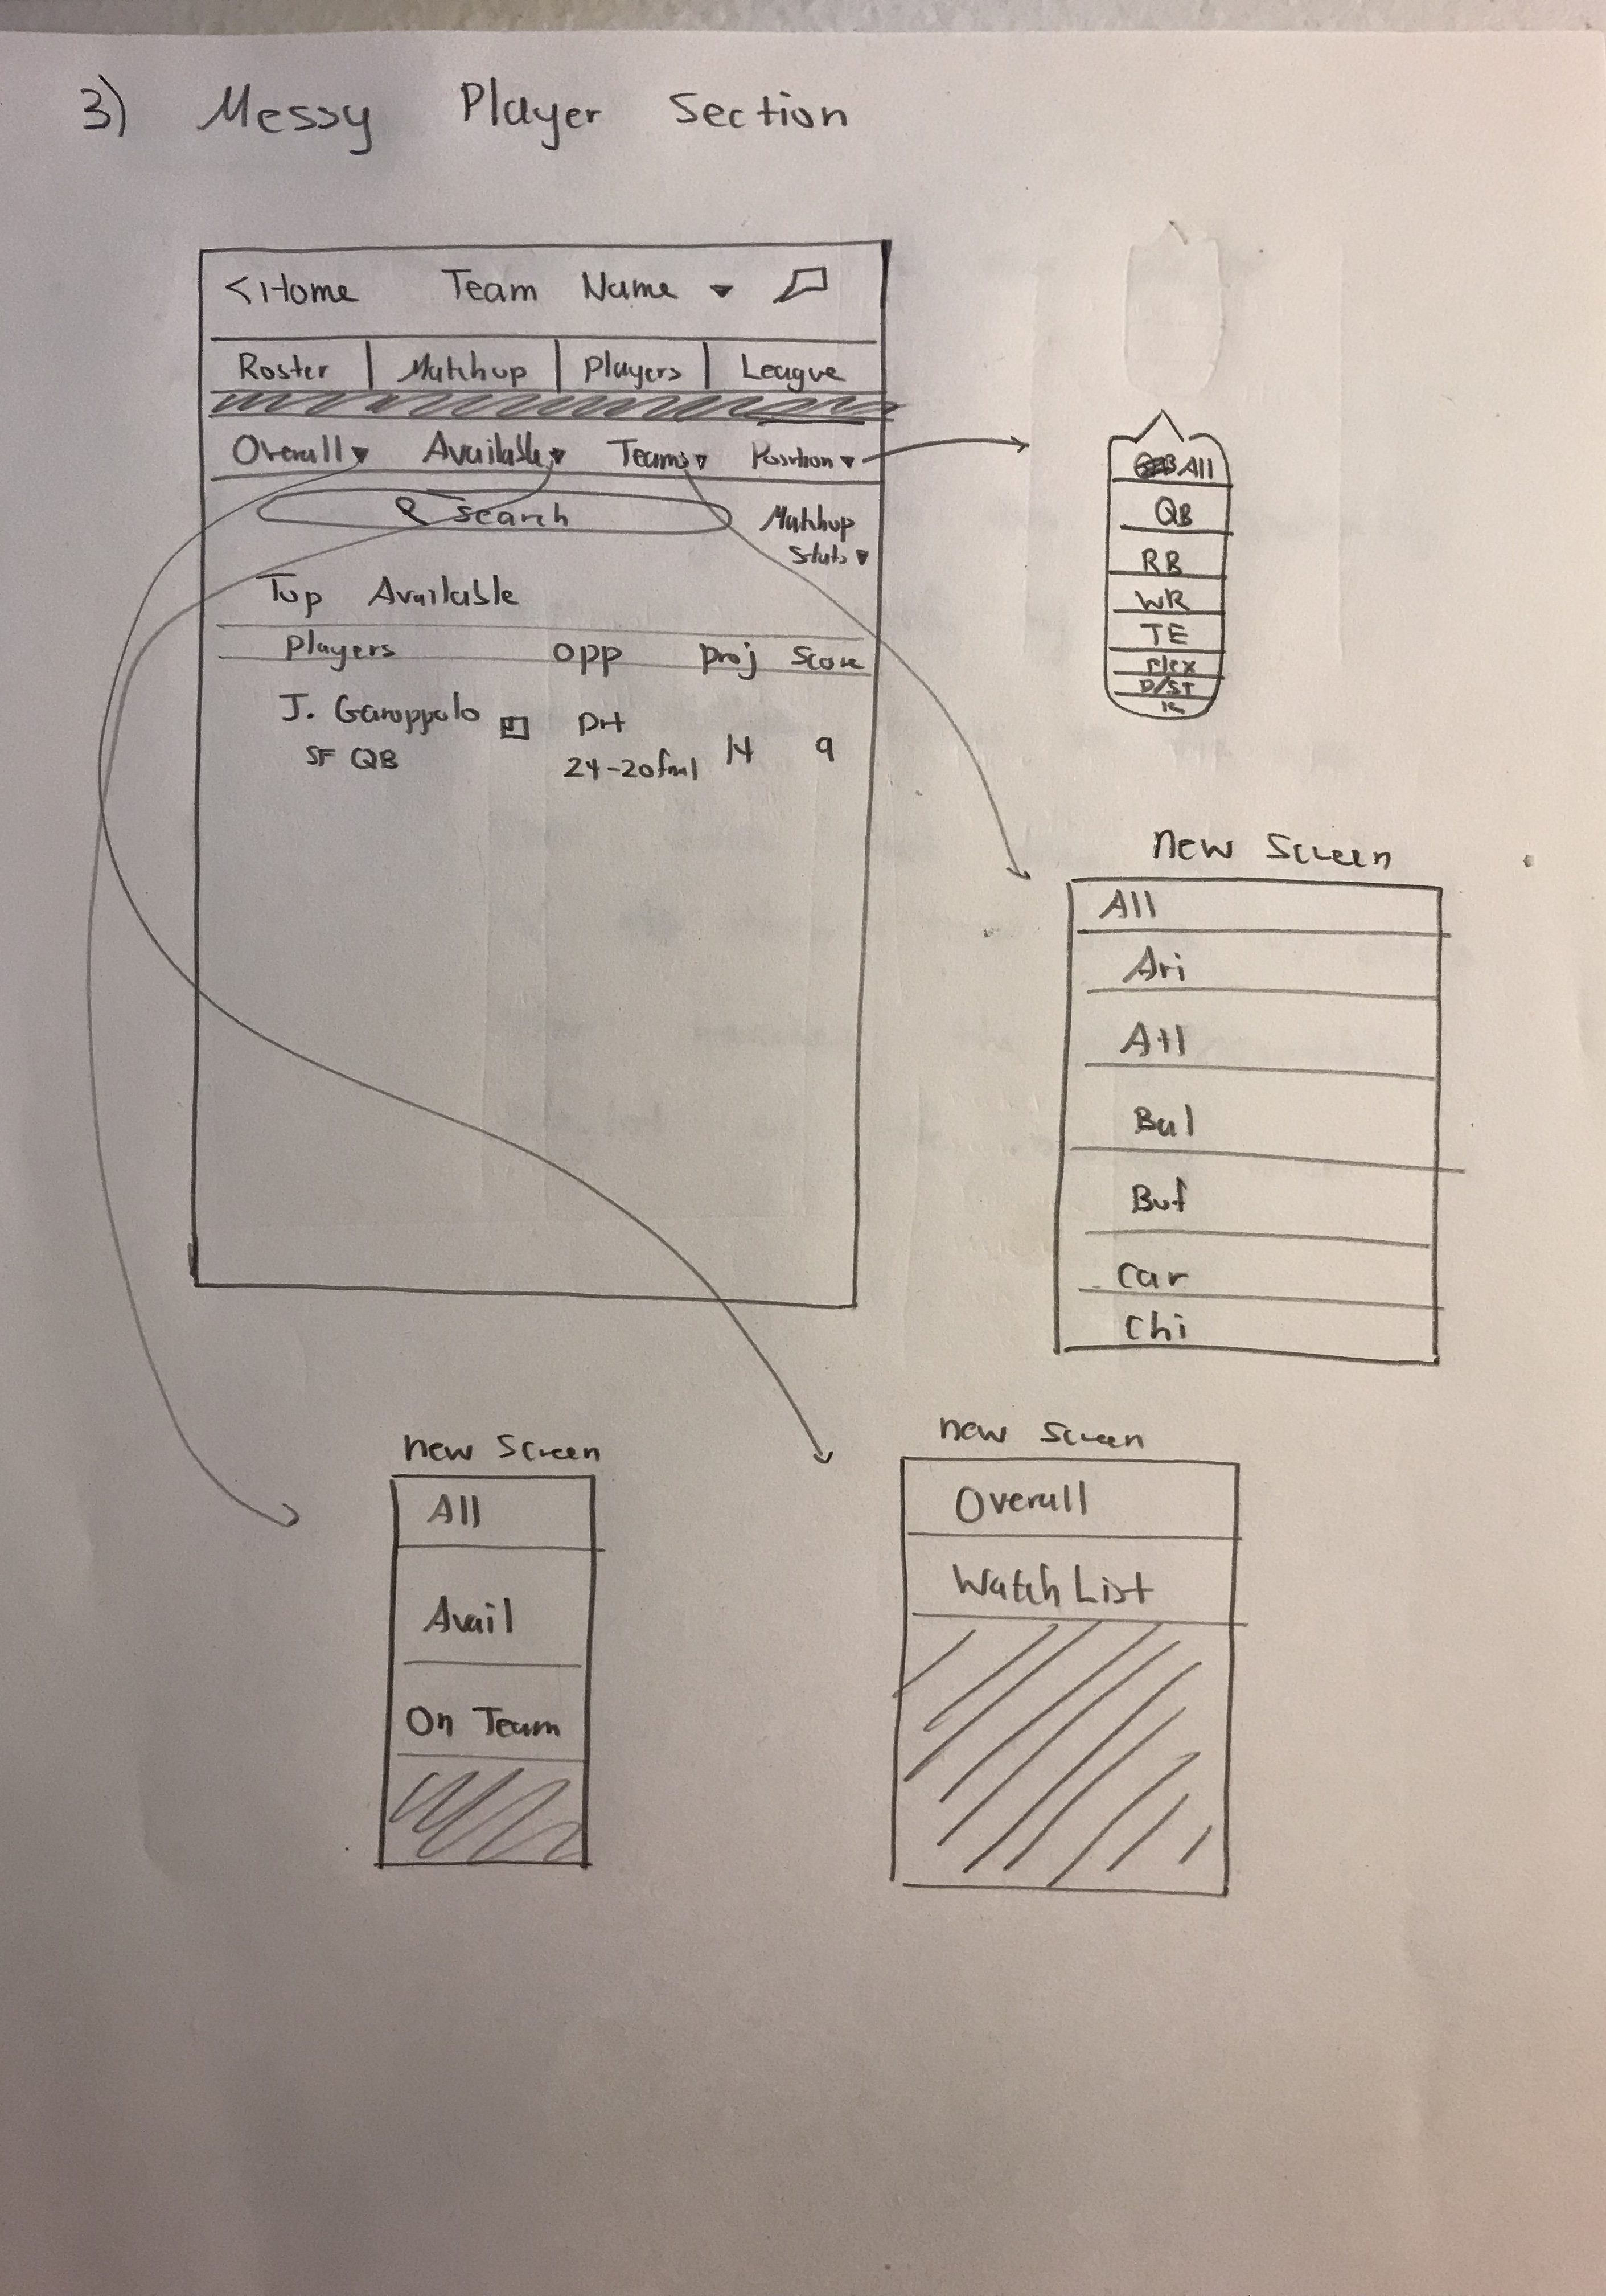 3) Messy Player Section
< Home Team Name
Roster Matchup Players League
Overall Available Teams Position
Search
Matchup
Stats
Top Available
Players Opp Proj Score
J. Garoppolo
SF QB
Det
24-20 final
14 9
All
QB
RB
WR
TE
Flex
D/ST
K
new Screen
All
Ari
Atl
Bal
Buf
Car
Chi
new Screen
All
Avail
On Team
new Screen
Overall
Watch List